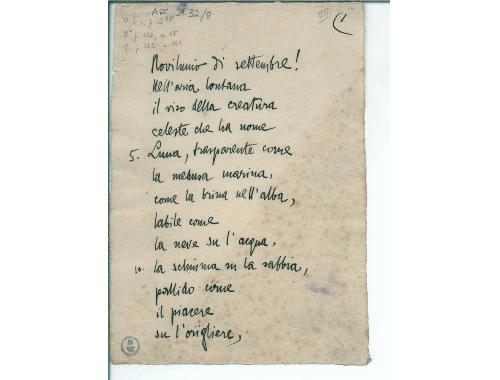 Novilunio di settembre!
Nell'aria lontana
il viso della creatura
celeste che ha nome
5. Luna, trasparente come
la medusa marina,
come la brina nell'alba,
labile come
la neve su l'acqua,
10. la schiuma su la sabbia,
pallido come
il piacere
su l'origliere,